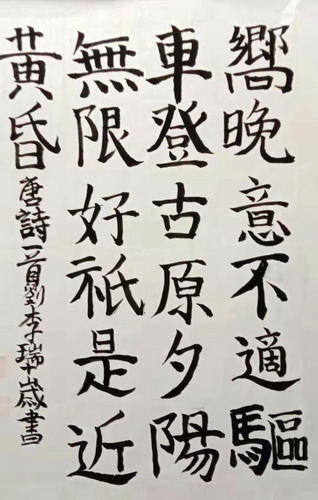 嚮晚意不適驅
車登古原夕陽
無限好祇是近
黃昏唐詩一首劉李瑞十歲書